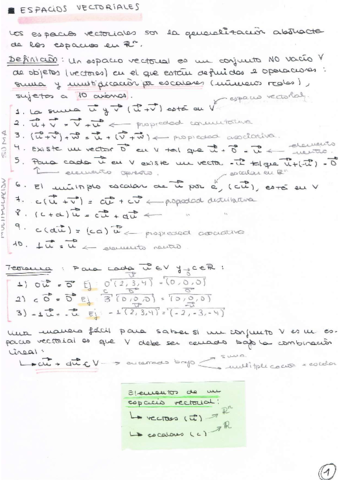 ESPACIOS VECTORIALES
Los espacios vectoriales son la generalización abstracta
de los espacios en ℝⁿ.
Definición: Un espacio vectorial es un conjunto NO vacío V
de objetos (vectores) en el que están definidas 2 operaciones:
suma y multiplicación por escalares (números reales),
sujetos a 10 axiomas: espacio vectorial
SUMA
1. La suma u⃗ y v⃗ (u⃗+v⃗) está en V
2. u⃗+v⃗ = v⃗+u⃗ ← propiedad conmutativa
3. (u⃗+v⃗)+w⃗ = u⃗+(v⃗+w⃗) ← propiedad asociativa
4. Existe un vector 0⃗ en V tal que u⃗+0⃗ = u⃗ ← elemento neutro
5. Para cada u⃗ en V existe un vector -u⃗ tal que u⃗+(-u⃗) = 0⃗
elemento opuesto. escalar en ℝ
MULTIPLICACIÓN
6. El múltiplo escalar de u⃗ por c, (cu⃗), está en V
7. c(u⃗+v⃗) = cu⃗+cv⃗ ← propiedad distributiva
8. (c+d)u⃗ = cu⃗+du⃗ ←
9. c(du⃗) = (cd)u⃗ ← propiedad asociativa
10. 1u⃗ = u⃗ ← elemento neutro
Teorema: Para cada u⃗ ∈ V y c ∈ ℝ:
1) 0u⃗ = 0⃗ Ej. 0(2,3,4) = (0,0,0)
2) c0⃗ = 0⃗ Ej. 3(0,0,0) = (0,0,0)
3) -1u⃗ = -u⃗ Ej. -1(2,3,4) = (-2,-3,-4)
Una manera fácil para saber si un conjunto V es un es-
pacio vectorial es que V debe ser cerrado bajo la combinación
lineal:
↳ cu⃗ + dv⃗ ∈ V → cerrado bajo suma
multiplicación escalar
Elementos de un
espacio vectorial:
↳ vectores (u⃗) → ℝⁿ
↳ escalares (c) → ℝ
1